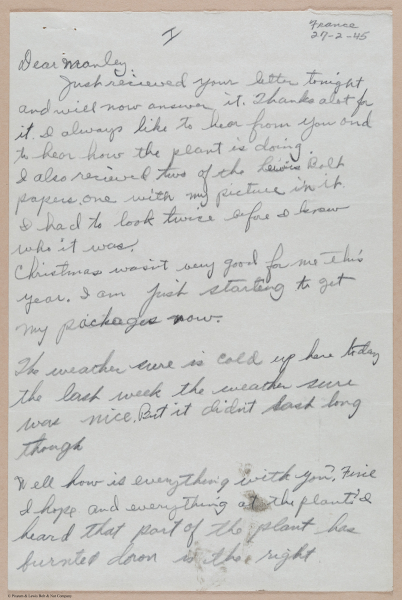 I
France
27-2-45
Dear Manley.
Just recieved your letter tonight
and will now answer it. Thanks alot for
it. I always like to hear from you and
to hear how the plant is doing.
I also recieved two of the Lewis Bolt
papers. one with my picture in it.
I had to look twice before I knew
who it was.
Christmas wasn't very good for me this
year. I am just starting to get
my packages now.
The weather sure is cold up here today
the last week the weather sure
was nice. But it didn't last long
though
Well how is everything with you? Fine
I hope and everything at the plant? I
heard that part of the plant has
burnted down is that right
© Pioneer & Lewis Bolt & Nut Company